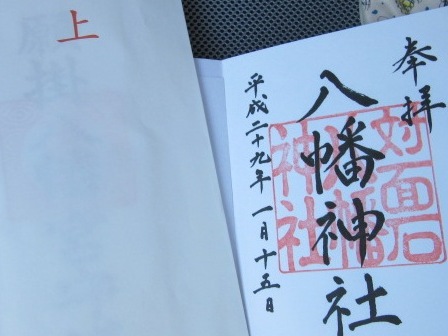 上
奉拝
八幡神社
平成二十九年一月十五日
対面石
八幡
神社